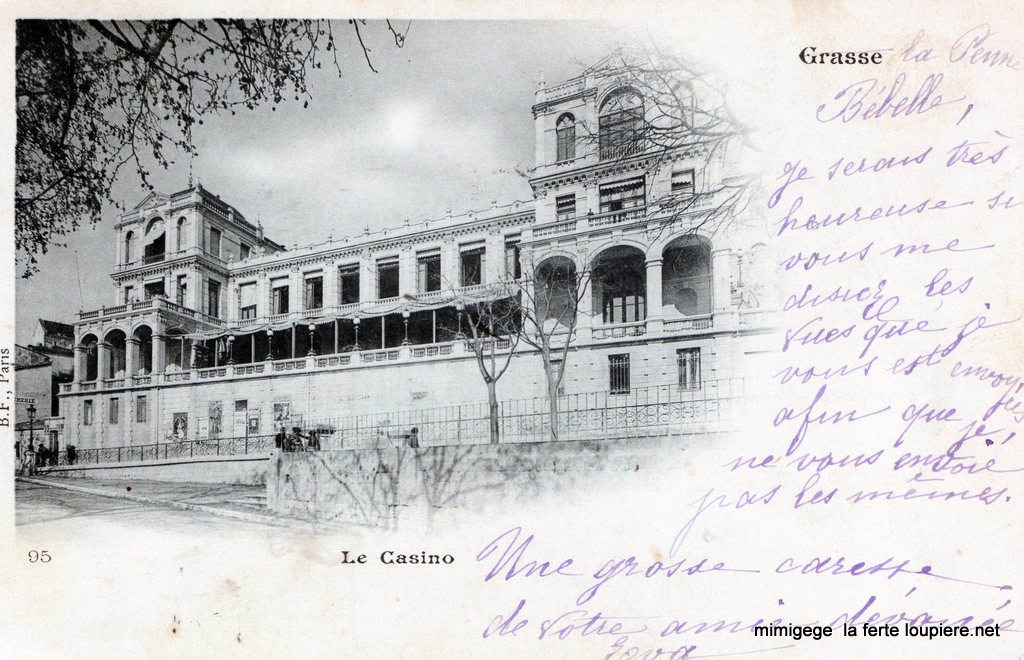 Grasse la Penne
Bébelle,
Je serais très
heureuse si
vous me
disiez les
vues que je
vous est envoy
ées
afin que
je
ne vous envoie
pas les mêmes.
Une grosse caresse
de votre amie dévouée
B.F., Paris
95
Le Casino
mimigege la ferte loupiere.net